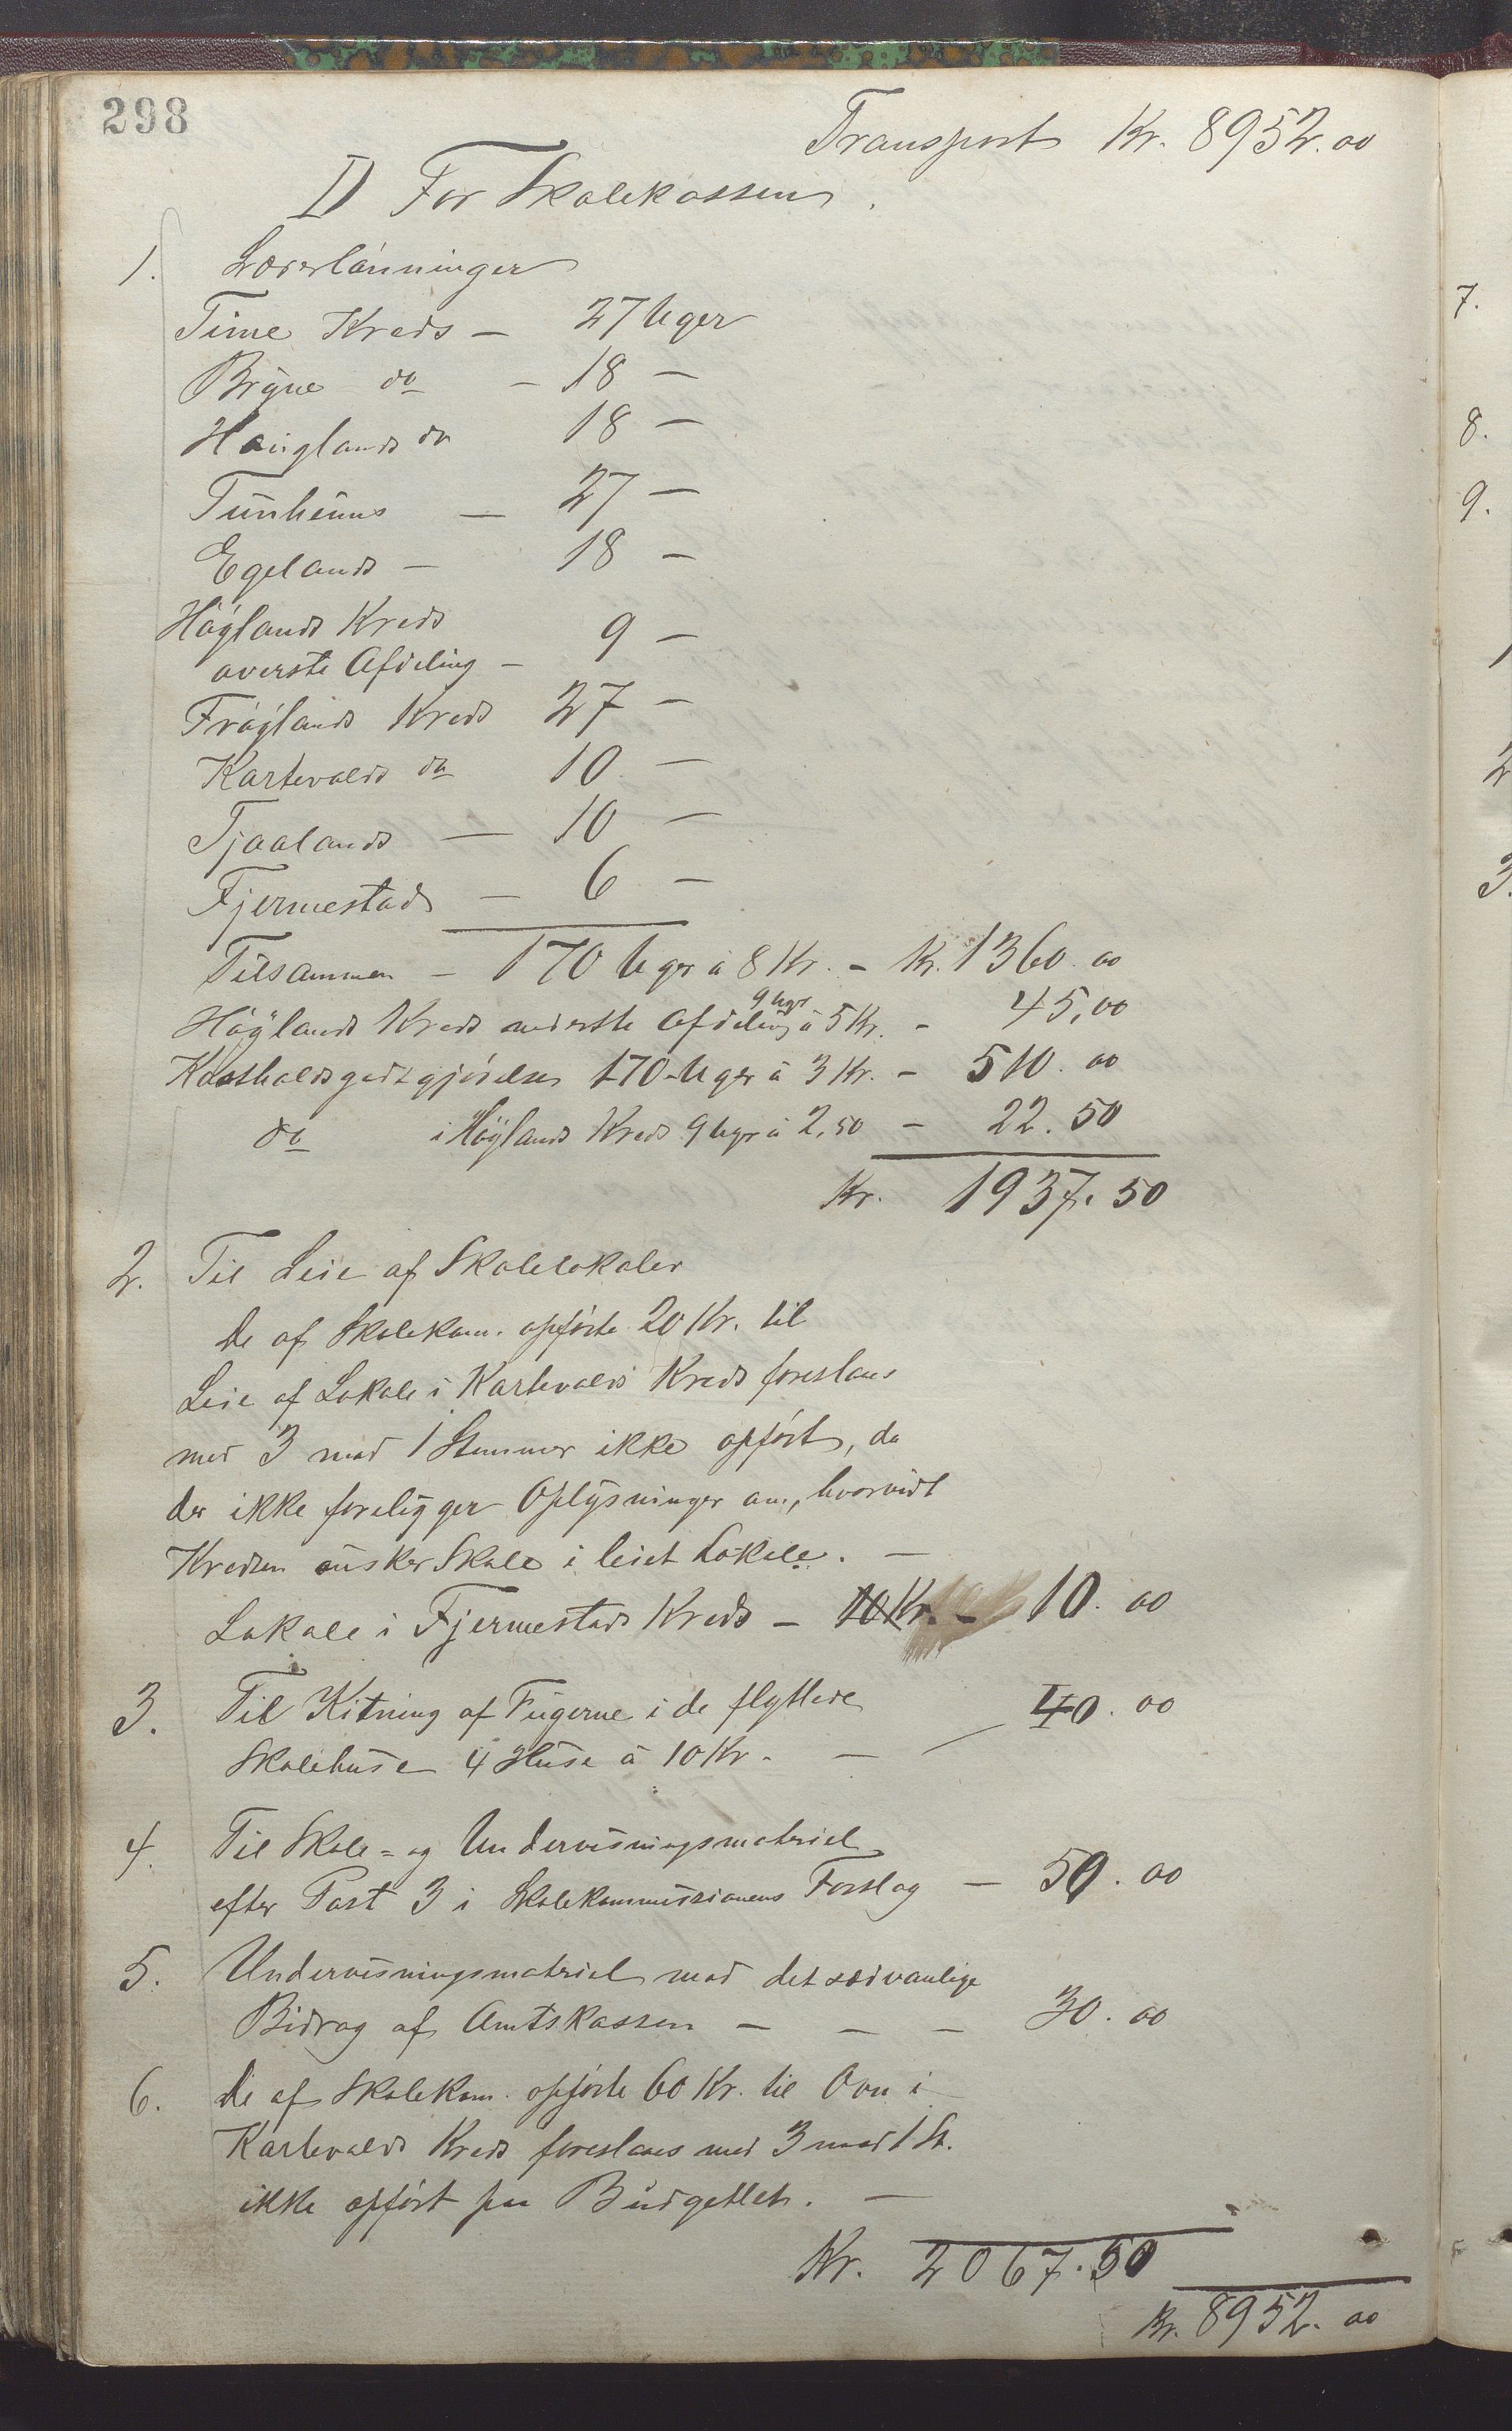 298
Transport Kr. 8952.00
D For Skolekassen.
1. Lærerlønninger
Time Kreds — 27 Uger
Bryne do — 18 —
Hauglands do 18 —
Tunheims — 27 —
Egelands — 18 —
Høylands Kreds
øverste Afdeling — 9 —
Frøylands Kreds 27 —
Kartevolds do 10 —
Tjaalands — 10 —
Fjermestads — 6 —
Tilsammen — 170 Uger à 8 Kr. — Kr. 1360.00
Høylands Kreds nederste Afdeling 9 Uger à 5 Kr. — 45,00
Kostholdsgodtgjørelse 170 Uger à 3 Kr. — 510.00
do i Høylands Kreds 9 Uger à 2,50 — 22.50
Kr. 1937.50
2. Til Leie af Skolelokaler
De af Skolekom. opførte 20 Kr. til
Leie af Lokale i Kartevolds Kreds foreslaaes
med 3 mod 1 Stemmer ikke opført, da
der ikke foreligger Oplysninger om, hvorvidt
Kredsen ønsker Skole i leiet Lokale. —
Lokale i Fjermestads Kreds — 10 Kr. — 10.00
3. Til Kitning af Fugerne i de flyttede
Skolehuse 4 Huse à 10 Kr. — 40.00
4. Til Skole- og Undervisningsmateriel
efter Post 3 i Skolekommissionens Forslag — 50.00
5. Undervisningsmateriel mod det sædvanlige
Bidrag af Amtskassen — — — 30.00
6. De af Skolekom. opførte 60 Kr. til Ovn i
Kartevolds Kreds foreslaaes med 3 mod 1 St.
ikke opført paa Budgettet. —
Kr. 2067.50
Kr. 8952.00
7.
8.
9.
2
3.